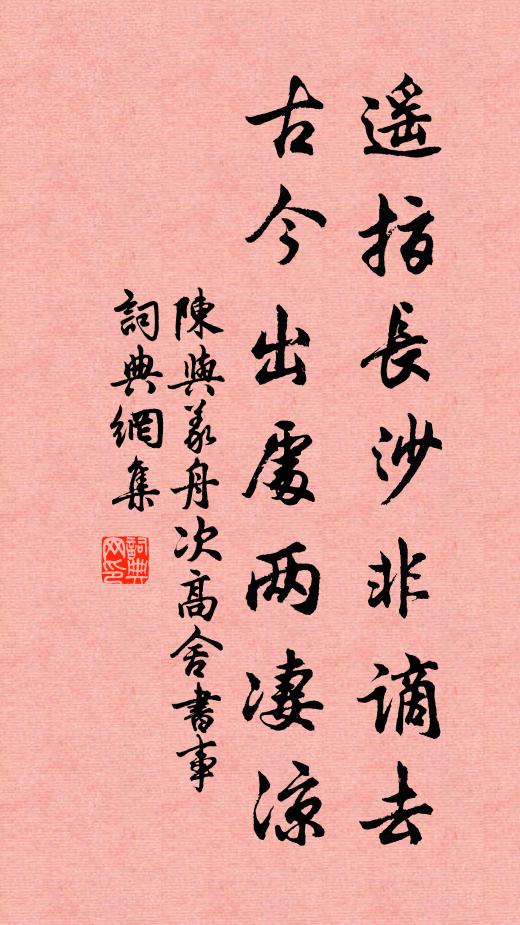 遥指長沙非谪去
古今出處两凄涼
陳與義舟次高舍書事
詞典網集
詞典
网印